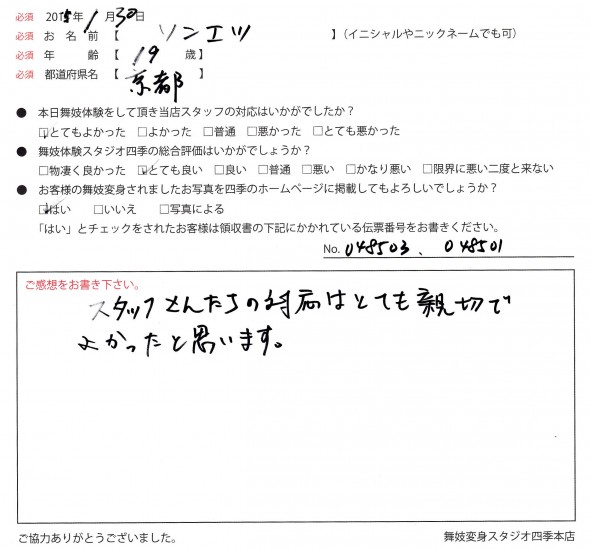 必須 2015年1月30日
必須 お名前【 ソンエツ 】(イニシャルやニックネームでも可)
必須 年 齢【 19 歳】
必須 都道府県名【 京都 】
● 本日舞妓体験をして頂き当店スタッフの対応はいかがでしたか?
☑とてもよかった □よかった □普通 □悪かった □とても悪かった
● 舞妓体験スタジオ四季の総合評価はいかがでしょうか?
□物凄く良かった ☑とても良い □良い □普通 □悪い □かなり悪い □限界に悪い二度と来ない
● お客様の舞妓変身されましたお写真を四季のホームページに掲載してもよろしいでしょうか?
☑はい □いいえ □写真による
「はい」とチェックをされたお客様は領収書の下記にかかれている伝票番号をお書きください。
No. 048503、048501
ご感想をお書き下さい。
スタッフさんたちの対応はとても親切で
よかったと思います。
ご協力ありがとうございました。 舞妓変身スタジオ四季本店